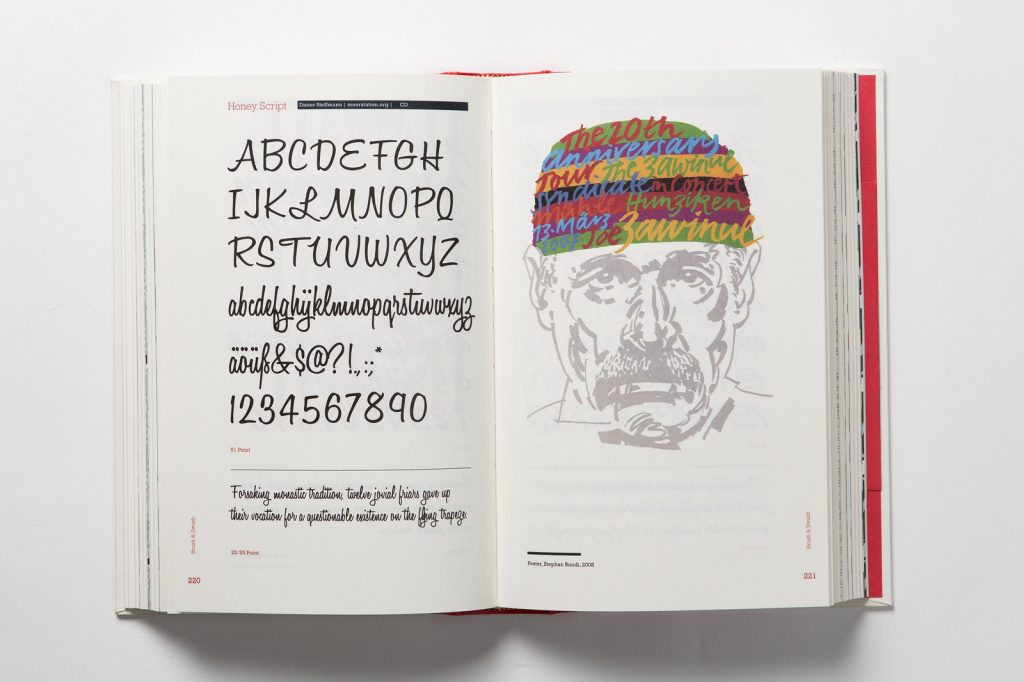 Honey Script
Dieter Steffmann | moorstation.org | CD
ABCDEFGH
IJKLMNOPQ
RSTUVWXYZ
abcdefghijklmnopqrstuvwxyz
äöüß&$@?!.,:;*
1234567890
51 Point
Forsaking monastic tradition, twelve jovial friars gave up
their vocation for a questionable existence on the flying trapeze.
22/25 Point
Brush & Swash
220
The 20th
anniversary
Tour. The Zawinul
Syndicate in Concert
Mühle Hunziken
13. März
2007 Joe Zawinul
Poster, Stephan Bundi, 2008
Brush & Swash
221